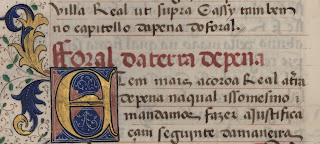 villa Real ut supra E assy tambem
no capitollo dapena do foral.
fforal da terra de pena
Tem mais a coroa Real a terra
de pena na qual isso mesmo
mandamos fazer a justifica
çam seguinte da maneira